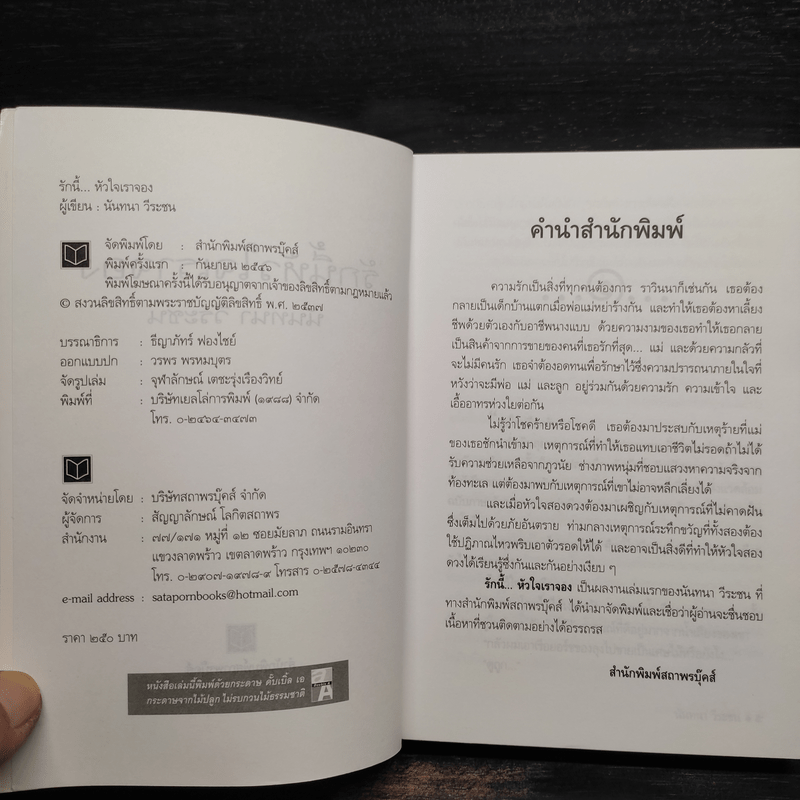 รักนี้... หัวใจเราจอง
ผู้เขียน : นันทนา วีระชน
จัดพิมพ์โดย : สำนักพิมพ์สถาพรบุ๊คส์
พิมพ์ครั้งแรก : กันยายน ๒๕๔๖
พิมพ์โฆษณาครั้งนี้ได้รับอนุญาตจากเจ้าของลิขสิทธิ์ตามกฎหมายแล้ว
© สงวนลิขสิทธิ์ตามพระราชบัญญัติลิขสิทธิ์ พ.ศ. ๒๕๓๗
บรรณาธิการ : ธีญาภัทร์ ฟองไชย์
ออกแบบปก : วรพร พรหมบุตร
จัดรูปเล่ม : จุฬาลักษณ์ เตชะรุ่งเรืองวิทย์
พิมพ์ที่ : บริษัทเยลโล่การพิมพ์ (๑๙๘๘) จำกัด
โทร. ๐-๒๔๖๔-๓๔๗๓
จัดจำหน่ายโดย : บริษัทสถาพรบุ๊คส์ จำกัด
ผู้จัดการ : สัญญาลักษณ์ โลกิตสถาพร
สำนักงาน : ๗๗/๑๗๑ หมู่ที่ ๑๒ ซอยมัยลาภ ถนนรามอินทรา
แขวงลาดพร้าว เขตลาดพร้าว กรุงเทพฯ ๑๐๒๓๐
โทร. ๐-๒๙๐๗-๑๙๗๘-๙ โทรสาร ๐-๒๕๗๘-๔๓๔๔
e-mail address : satapornbooks@hotmail.com
ราคา ๒๕๐ บาท
หนังสือเล่มนี้พิมพ์ด้วยกระดาษ ดั๊บเบิ้ล เอ
กระดาษจากไม้ปลูก ไม่รบกวนไม้ธรรมชาติ
คำนำสำนักพิมพ์
ความรักเป็นสิ่งที่ทุกคนต้องการ ราวินนาก็เช่นกัน เธอต้อง
กลายเป็นเด็กบ้านแตกเมื่อพ่อแม่หย่าร้างกัน และทำให้เธอต้องหาเลี้ยง
ชีพด้วยตัวเองกับอาชีพนางแบบ ด้วยความงามของเธอทำให้เธอกลาย
เป็นสินค้าจากการขายของคนที่เธอรักที่สุด... แม่ และด้วยความกลัวที่
จะไม่มีคนรัก เธอจำต้องอดทนเพื่อรักษาไว้ซึ่งความปรารถนาภายในใจที่
หวังว่าจะมีพ่อ แม่ และลูก อยู่ร่วมกันด้วยความรัก ความเข้าใจ และ
เอื้ออาทรห่วงใยต่อกัน
ไม่รู้ว่าโชคร้ายหรือโชคดี เธอต้องมาประสบกับเหตุร้ายที่แม่
ของเธอชักนำเข้ามา เหตุการณ์ที่ทำให้เธอแทบเอาชีวิตไม่รอดถ้าไม่ได้
รับความช่วยเหลือจากภูวนัย ช่างภาพหนุ่มที่ชอบแสวงหาความจริงจาก
ท้องทะเล แต่ต้องมาพบกับเหตุการณ์ที่เขาไม่อาจหลีกเลี่ยงได้
และเมื่อหัวใจสองดวงต้องมาเผชิญกับเหตุการณ์ที่ไม่คาดฝัน
ซึ่งเต็มไปด้วยภัยอันตราย ท่ามกลางเหตุการณ์ระทึกขวัญที่ทั้งสองต้อง
ใช้ปฏิภาณไหวพริบเอาตัวรอดให้ได้ และอาจเป็นสิ่งดีที่ทำให้หัวใจสอง
ดวงได้เรียนรู้ซึ่งกันและกันอย่างเงียบ ๆ
รักนี้... หัวใจเราจอง เป็นผลงานเล่มแรกของนันทนา วีระชน ที่
ทางสำนักพิมพ์สถาพรบุ๊คส์ ได้นำมาจัดพิมพ์และเชื่อว่าผู้อ่านจะชื่นชอบ
เนื้อหาที่ชวนติดตามอย่างได้อรรถรส
สำนักพิมพ์สถาพรบุ๊คส์